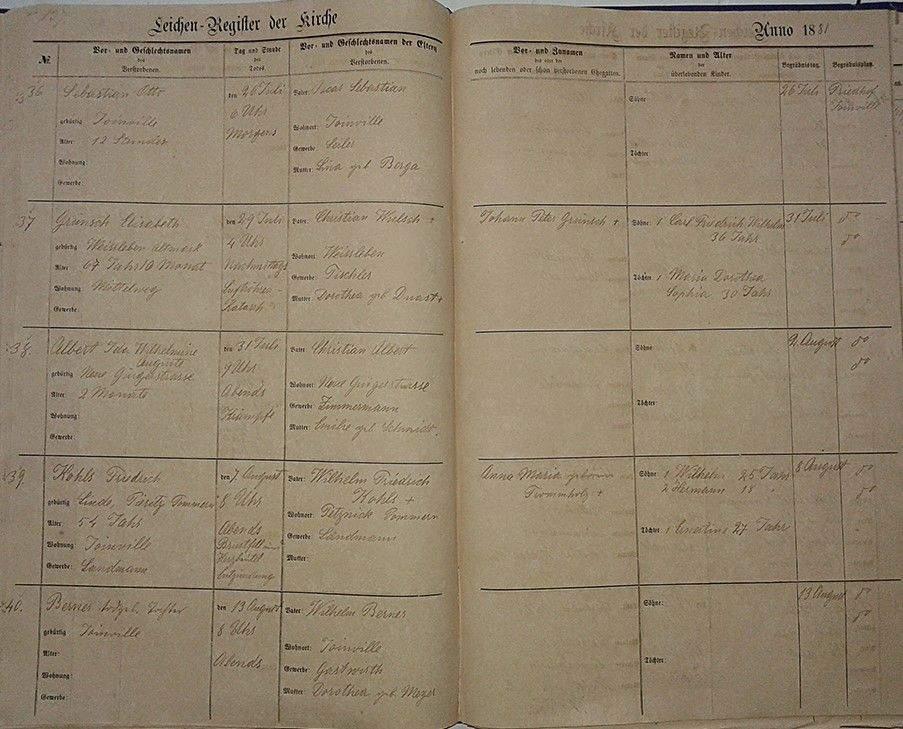 Leichen-Register der Kirche
Anno 1881
№
Vor- und Geschlechtsnamen
des
Verstorbenen.
Tag und Stunde
des
Todes.
Vor- und Geschlechtsnamen der Eltern
des
Verstorbenen.
Vor- und Zunamen
des oder der
noch lebenden oder schon verstorbenen Ehegatten.
Namen und Alter
der
überlebenden Kinder.
Begräbnistag.
Begräbnisplatz.
36
Sebastian Otto
gebürtig Joinville
Alter: 12 Stunden
Wohnung:
Gewerbe:
den 26 Juli
6 Uhr
Morgens
Vater: Oscar Sebastian
Wohnort: Joinville
Gewerbe: Seiler
Mutter: Lina geb Berga
Söhne
Töchter
26 Juli
Friedhof
Joinville
37
Grünsch Elisabeth
gebürtig Weissleben Altmark
Alter 67 Jahr 10 Monat
Wohnung: Mittelweg
Gewerbe:
den 29 Juli
4 Uhr
Nachmittags
Katarrh
Vater: Christian Wielsch +
Wohnort Weissleben
Gewerbe: Tischler
Mutter: Dorothea geb +
Johann Peter Grünsch +
Söhne 1 Carl Friedrich Wilhelm
36 Jahr
Töchter 1 Maria Dorothea
Sophia 30 Jahr
31 Juli
do
do
38.
Albert Ida Wilhelmine
Auguste
gebürtig Neue
Alter 2 Monate
Wohnung:
Gewerbe:
den 31 Juli
9 Uhr
Abends
Krämpfe
Vater Christian Albert
Wohnort: Neue
Gewerbe: Zimmermann
Mutter: Emilie geb Schmidt.
Söhne
Töchter:
2. August
do
do
39.
Kohls Friedrich
gebürtig Linde, Pommern
Alter: 54 Jahr
Wohnung Joinville
Gewerbe: Landmann
den 7. August
8 Uhr
Abends
Brustfell und
Herzbeutel
Entzündung
Vater: Wilhelm Friedrich
Kohls +
Wohnort: Petznick Pommern
Gewerbe: Landmann
Mutter:
Anna Maria geborne
Trommholz +
Söhne 1 Wilhelm 25 Jahr
2 Hermann 18 "
Töchter 1 Ernestine 27 Jahr
8 August
do
do
40.
Berner todgeb. Tochter
gebürtig Joinville
Alter:
Wohnung:
Gewerbe:
den 13 August
8 Uhr
Abends
Vater: Wilhelm Berner
Wohnort: Joinville
Gewerbe: Gastwirth
Mutter: Dorothea geb. Meyer
Söhne:
Töchter:
13 August
do
do